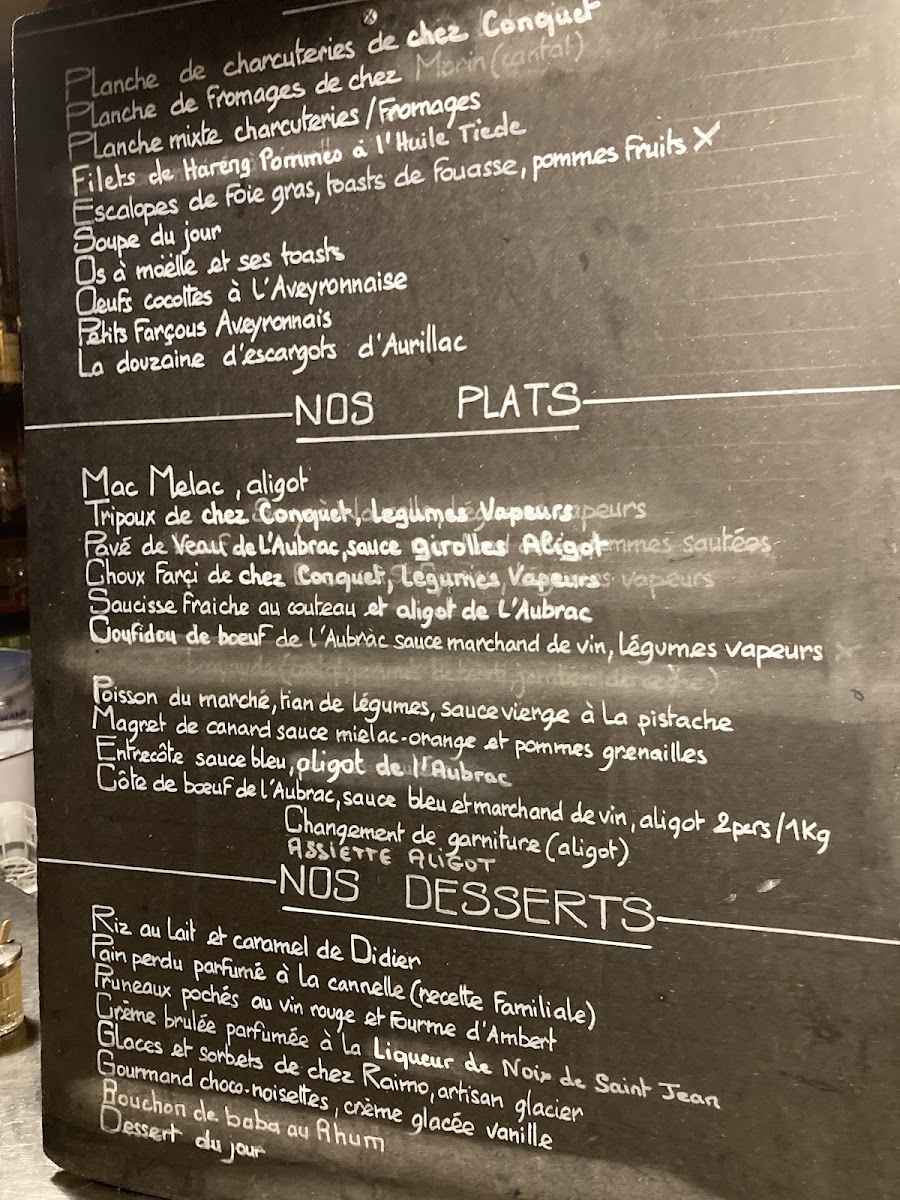 Planche de charcuteries de chez Conquet
Planche de fromages de chez Morin (cantal)
Planche mixte charcuteries/Fromages
Filets de Hareng Pommes à l'Huile Tiede
Escalopes de Foie gras, toasts de Fouasse, pommes Fruits X
Soupe du jour
Os à moëlle et ses toasts
Oeufs cocottes à L'Aveyronnaise
Petits Farçous Aveyronnais
La douzaine d'escargots d'Aurillac
NOS PLATS
Mac Melac, aligot
Tripoux de chez Conquet, Legumes Vapeurs
Pavé de Veau de L'Aubrac, sauce girolles Aligot
Choux Farçi de chez Conquet, Légumes Vapeurs
Saucisse Fraiche au couteau et aligot de L'Aubrac
Coufidou de bœuf de l'Aubrac sauce marchand de vin, Légumes vapeurs
Poisson du marché, tian de légumes, sauce vierge à La pistache
Magret de canard sauce mielac-orange et pommes grenailles
Entrecôte sauce bleu, aligot de l'Aubrac
Côte de bœuf de l'Aubrac, sauce bleu et marchand de vin, aligot 2pers/1Kg
Changement de garniture (aligot)
ASSIETTE ALIGOT
NOS DESSERTS
Riz au Lait et caramel de Didier
Pain perdu parfumé à La cannelle (recette Familiale)
Pruneaux pochés au vin rouge et Fourme d'Ambert
Crème brulée parfumée à La Liqueur de Noix de Saint Jean
Glaces et sorbets de chez Raimo, artisan glacier
Gourmand choco-noisettes, crème glacée vanille
Bouchon de baba au Rhum
Dessert du jour